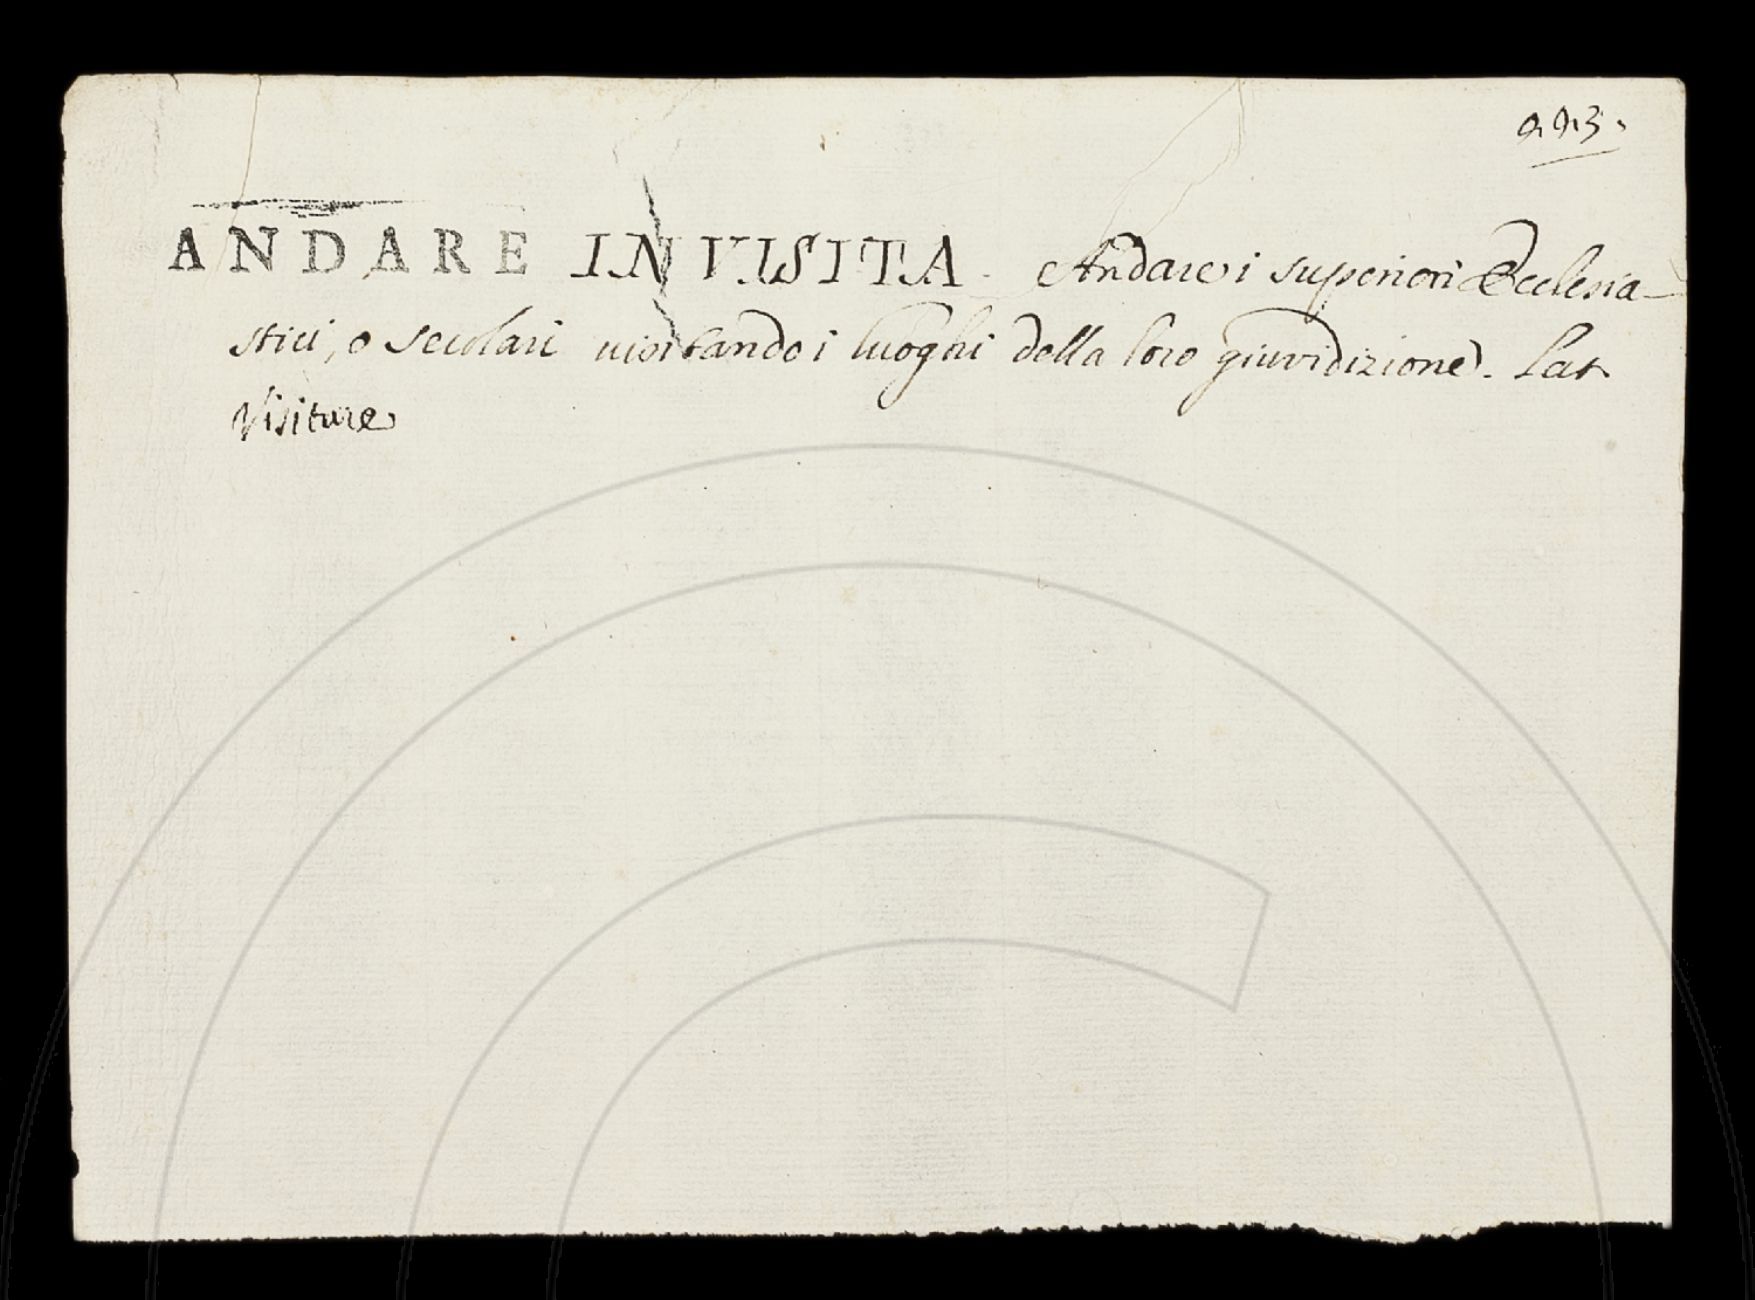 993.
ANDARE IN VISITA. Andare i superiori Ecclesia-
stici, o secolari visitando i luoghi della loro giuridizione. Lat.
Visitare